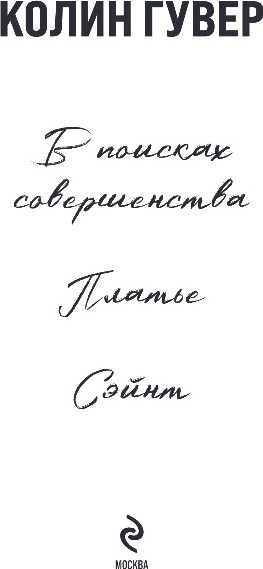 КОЛИН ГУВЕР
В поисках
совершенства
Платье
Сэйнт
МОСКВА